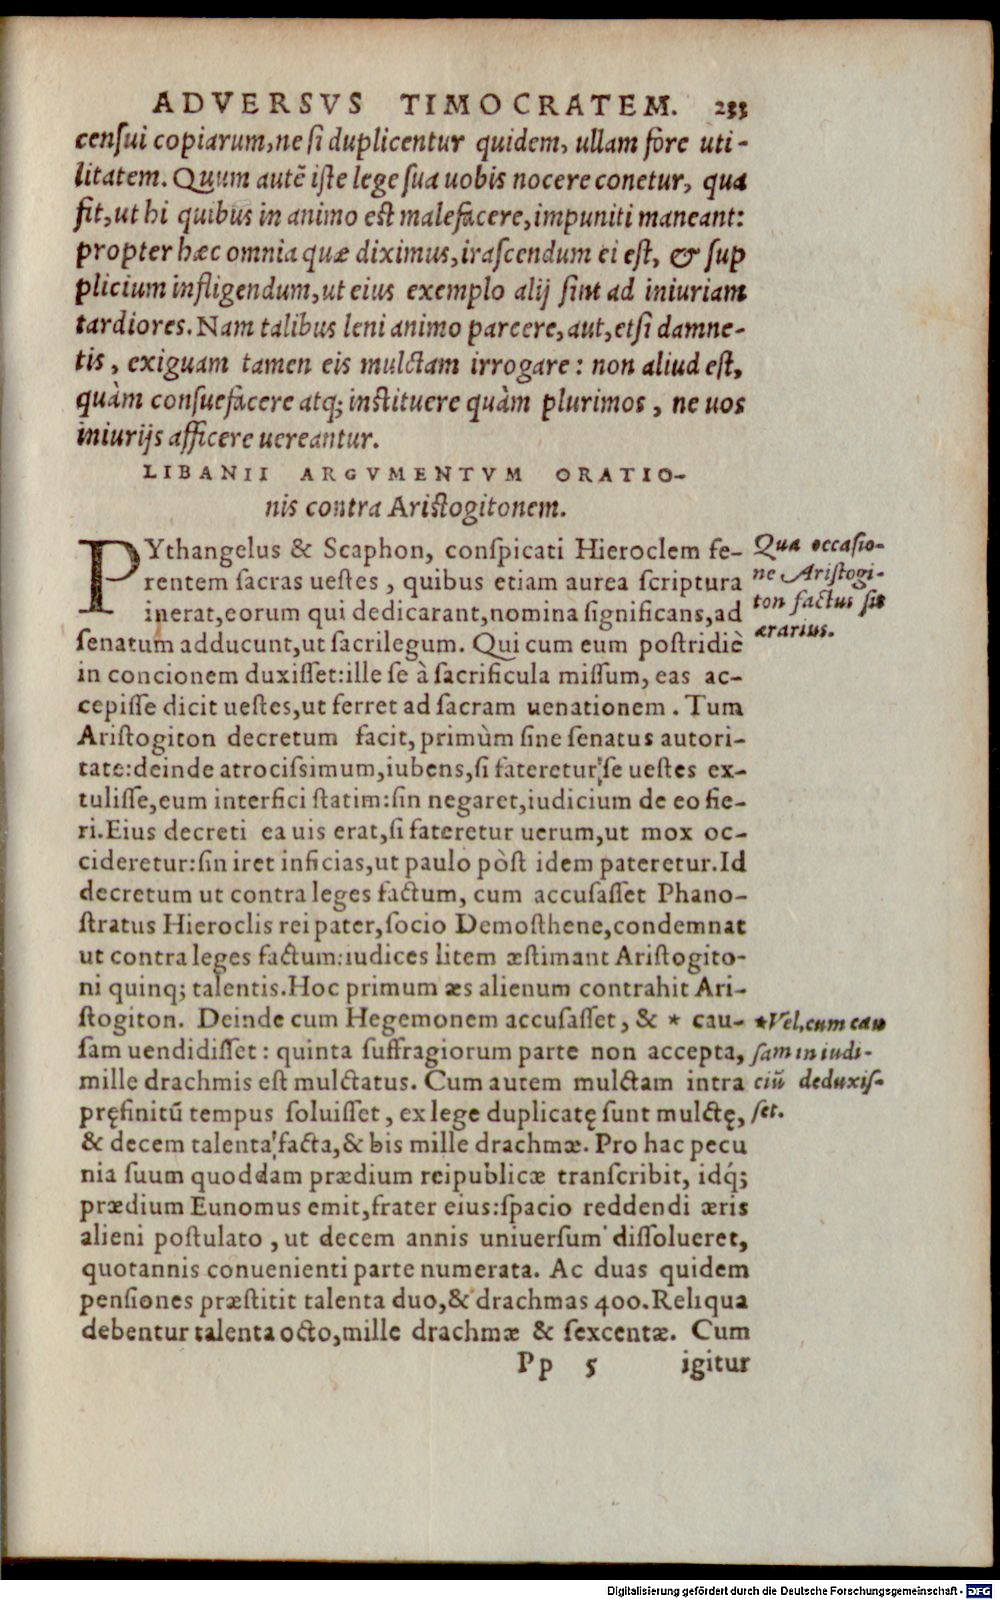 ADVERSVS TIMOCRATEM. 233
censui copiarum, ne si duplicentur quidem, ullam fore uti-
litatem. Quum autē iste lege sua uobis nocere conetur, qua
fit, ut hi quibus in animo est malefacere, impuniti maneant:
propter hæc omnia quæ diximus, irascendum ei est, & sup
plicium infligendum, ut eius exemplo alij sint ad iniuriam
tardiores. Nam talibus leni animo parcere, aut, etsi damne-
tis, exiguam tamen eis mulctam irrogare: non aliud est,
quàm consuefacere atq; instituere quàm plurimos, ne uos
iniurijs afficere uereantur.
LIBANII ARGVMENTVM ORATIO-
nis contra Aristogitonem.
PYthangelus & Scaphon, conspicati Hieroclem fe-
rentem sacras uestes, quibus etiam aurea scriptura
inerat, eorum qui dedicarant, nomina significans, ad
senatum adducunt, ut sacrilegum. Qui cum eum postridiè
in concionem duxisset: ille se à sacrificula missum, eas ac-
cepisse dicit uestes, ut ferret ad sacram uenationem. Tum
Aristogiton decretum facit, primùm sine senatus autori-
tate: deinde atrocissimum, iubens, si fateretur se uestes ex-
tulisse, eum interfici statim: sin negaret, iudicium de eo fie-
ri. Eius decreti ea uis erat, si fateretur uerum, ut mox oc-
cideretur: sin iret inficias, ut paulo pòst idem pateretur. Id
decretum ut contra leges factum, cum accusasset Phano-
stratus Hieroclis rei pater, socio Demosthene, condemnat
ut contra leges factum: iudices litem æstimant Aristogito-
ni quinq; talentis. Hoc primum æs alienum contrahit Ari-
stogiton. Deinde cum Hegemonem accusasset, & * cau-
sam uendidisset: quinta suffragiorum parte non accepta,
mille drachmis est mulctatus. Cum autem mulctam intra
pręfinitū tempus soluisset, ex lege duplicatę sunt mulctę,
& decem talenta facta, & bis mille drachmæ. Pro hac pecu
nia suum quoddam prædium reipublicæ transcribit, idq́;
prædium Eunomus emit, frater eius: spacio reddendi æris
alieni postulato, ut decem annis uniuersum dissolueret,
quotannis conuenienti parte numerata. Ac duas quidem
pensiones præstitit talenta duo, & drachmas 400. Reliqua
debentur talenta octo, mille drachmæ & sexcentæ. Cum
Pp 5 igitur
Qua occasio-
ne Aristogi-
ton factus sit
ærarius.
*Vel, cum cau
sam in iudi-
ciū deduxis-
set.
Digitalisierung gefördert durch die Deutsche Forschungsgemeinschaft - DFG